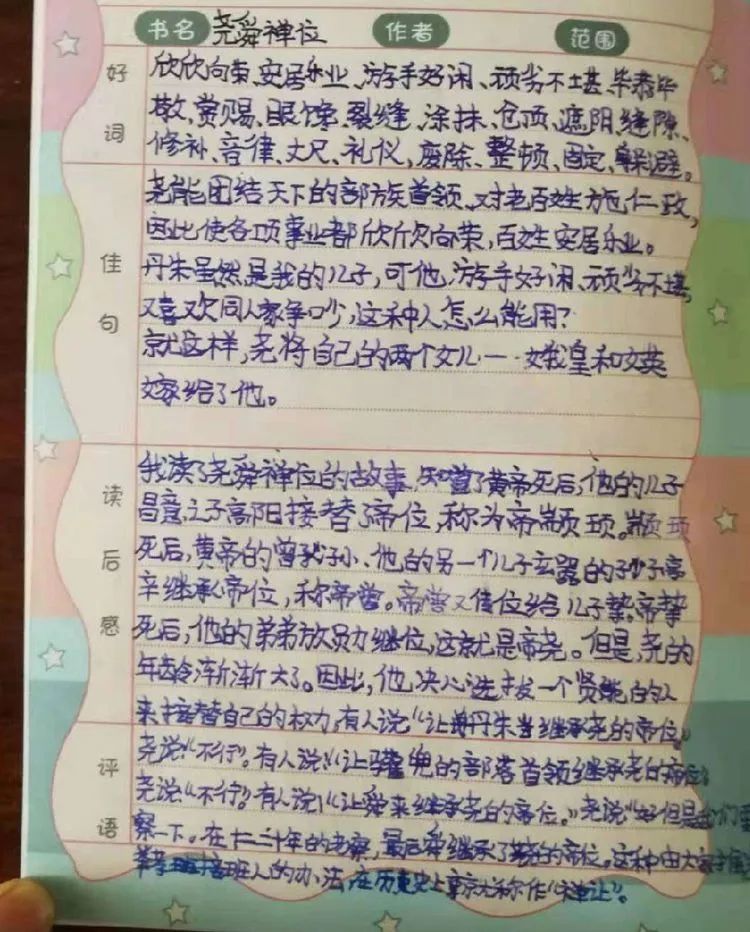 书名 尧舜禅位 作者 范围
好词 欣欣向荣、安居乐业、游手好闲、顽劣不堪、毕恭毕
敬、赏赐、眼馋、裂缝、涂抹、仓顶、遮阳、缝隙、
修补、音律、丈尺、礼仪，废除、整顿、固定、躲避。
佳句 尧能团结天下的部族首领、对老百姓施仁政，
因此使各项事业都欣欣向荣，百姓安居乐业。
丹朱虽然是我的儿子，可他，游手好闲、顽劣不堪，
又喜欢同人家争吵，这种人怎么能用？
就这样，尧将自己的两个女儿一·娥皇和女英
嫁给了他。
读后感 我读了尧舜禅位的故事，知道了黄帝死后，他的儿子
昌意之子高阳接替了帝位，称为帝颛顼。颛顼
死后，黄帝的曾孙子、他的另一个儿子玄嚣的孙子高
辛继承帝位，称帝喾。帝喾又传位给儿子挚，帝挚
死后，他的弟弟放勋继位，这就是帝尧。但是，尧的
年龄渐渐大了。因此，他决心选拔一个贤能的人
来接替自己的权力，有人说“让丹朱当继承尧的帝位。”
评语 尧说“不行”。有人说：“让驩兜的部落首领继承尧的帝位。
尧说“不行”。有人说“让舜来继承尧的帝位。”尧说“好但是我们
察一下。在十二十年的考察，最后舜继承了尧的帝位。这种由大家推
接班人的办法，在历史上章就称作“禅让”。